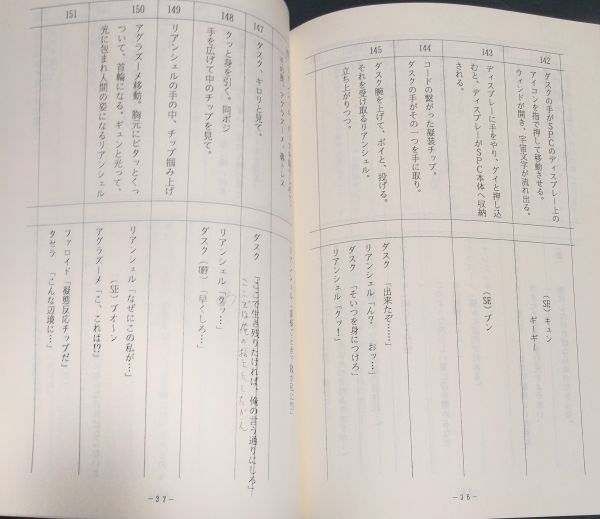 142
ダスクの手がSPCのディスプレー上の
アイコンを指で押して移動させる。
ウィンドが開き、宇宙文字が流れ出る。
(SE)キュン
ギーギー
143
ディスプレーに手をやり、グイと押し込
むと、ディスプレーがSPC本体へ収納
される。
(SE)ブン
144
コードの繋がった擬装チップ。
ダスクの手がその一つを手に取り。
145
ダスク腕を上げて、ポイと、投げる。
それを受け取るリアンシェル。
立ち上がりつつ。
ダスク「出来たぞ……」
リアンシェル「ん?　おッ…」
ダスク「そいつを身につけろ」
リアンシェル「クッ!」
－36－
147
ダスク、キロリと見て。
ダスク「ここで生き残りたければ、俺の言う通りにしろ」
148
クッと身を引く。同ポジ
手を広げて中のチップを見て。
リアンシェル「クッ…」
ダスク(嘲)「早くしろ…」
149
リアンシェルの手の中、チップ掴み上げ
150
アグラズーメ移動。胸元にピタッとくっ
ついて、首輪になる。ギュンと光って、
光に包まれ人間の姿になるリアンシェル
リアンシェル「なぜにこの私が…」
(SE)ブオ～ン
アグラズーメ「こ、これは!?」
151
ファロイド「擬態反応チップだ」
タセラ「こんな辺境に…」
－37－